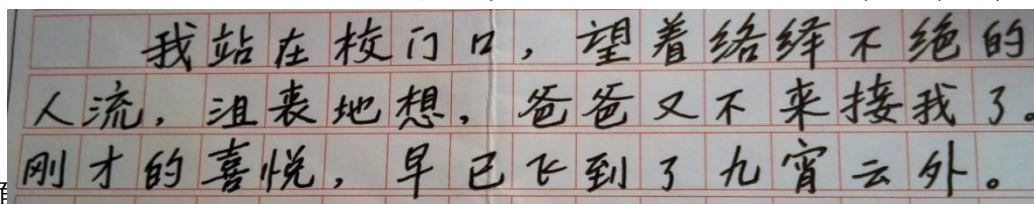 我站在校门口，望着络绎不绝的
人流，沮丧地想，爸爸又不来接我了。
刚才的喜悦，早已飞到了九宵云外。